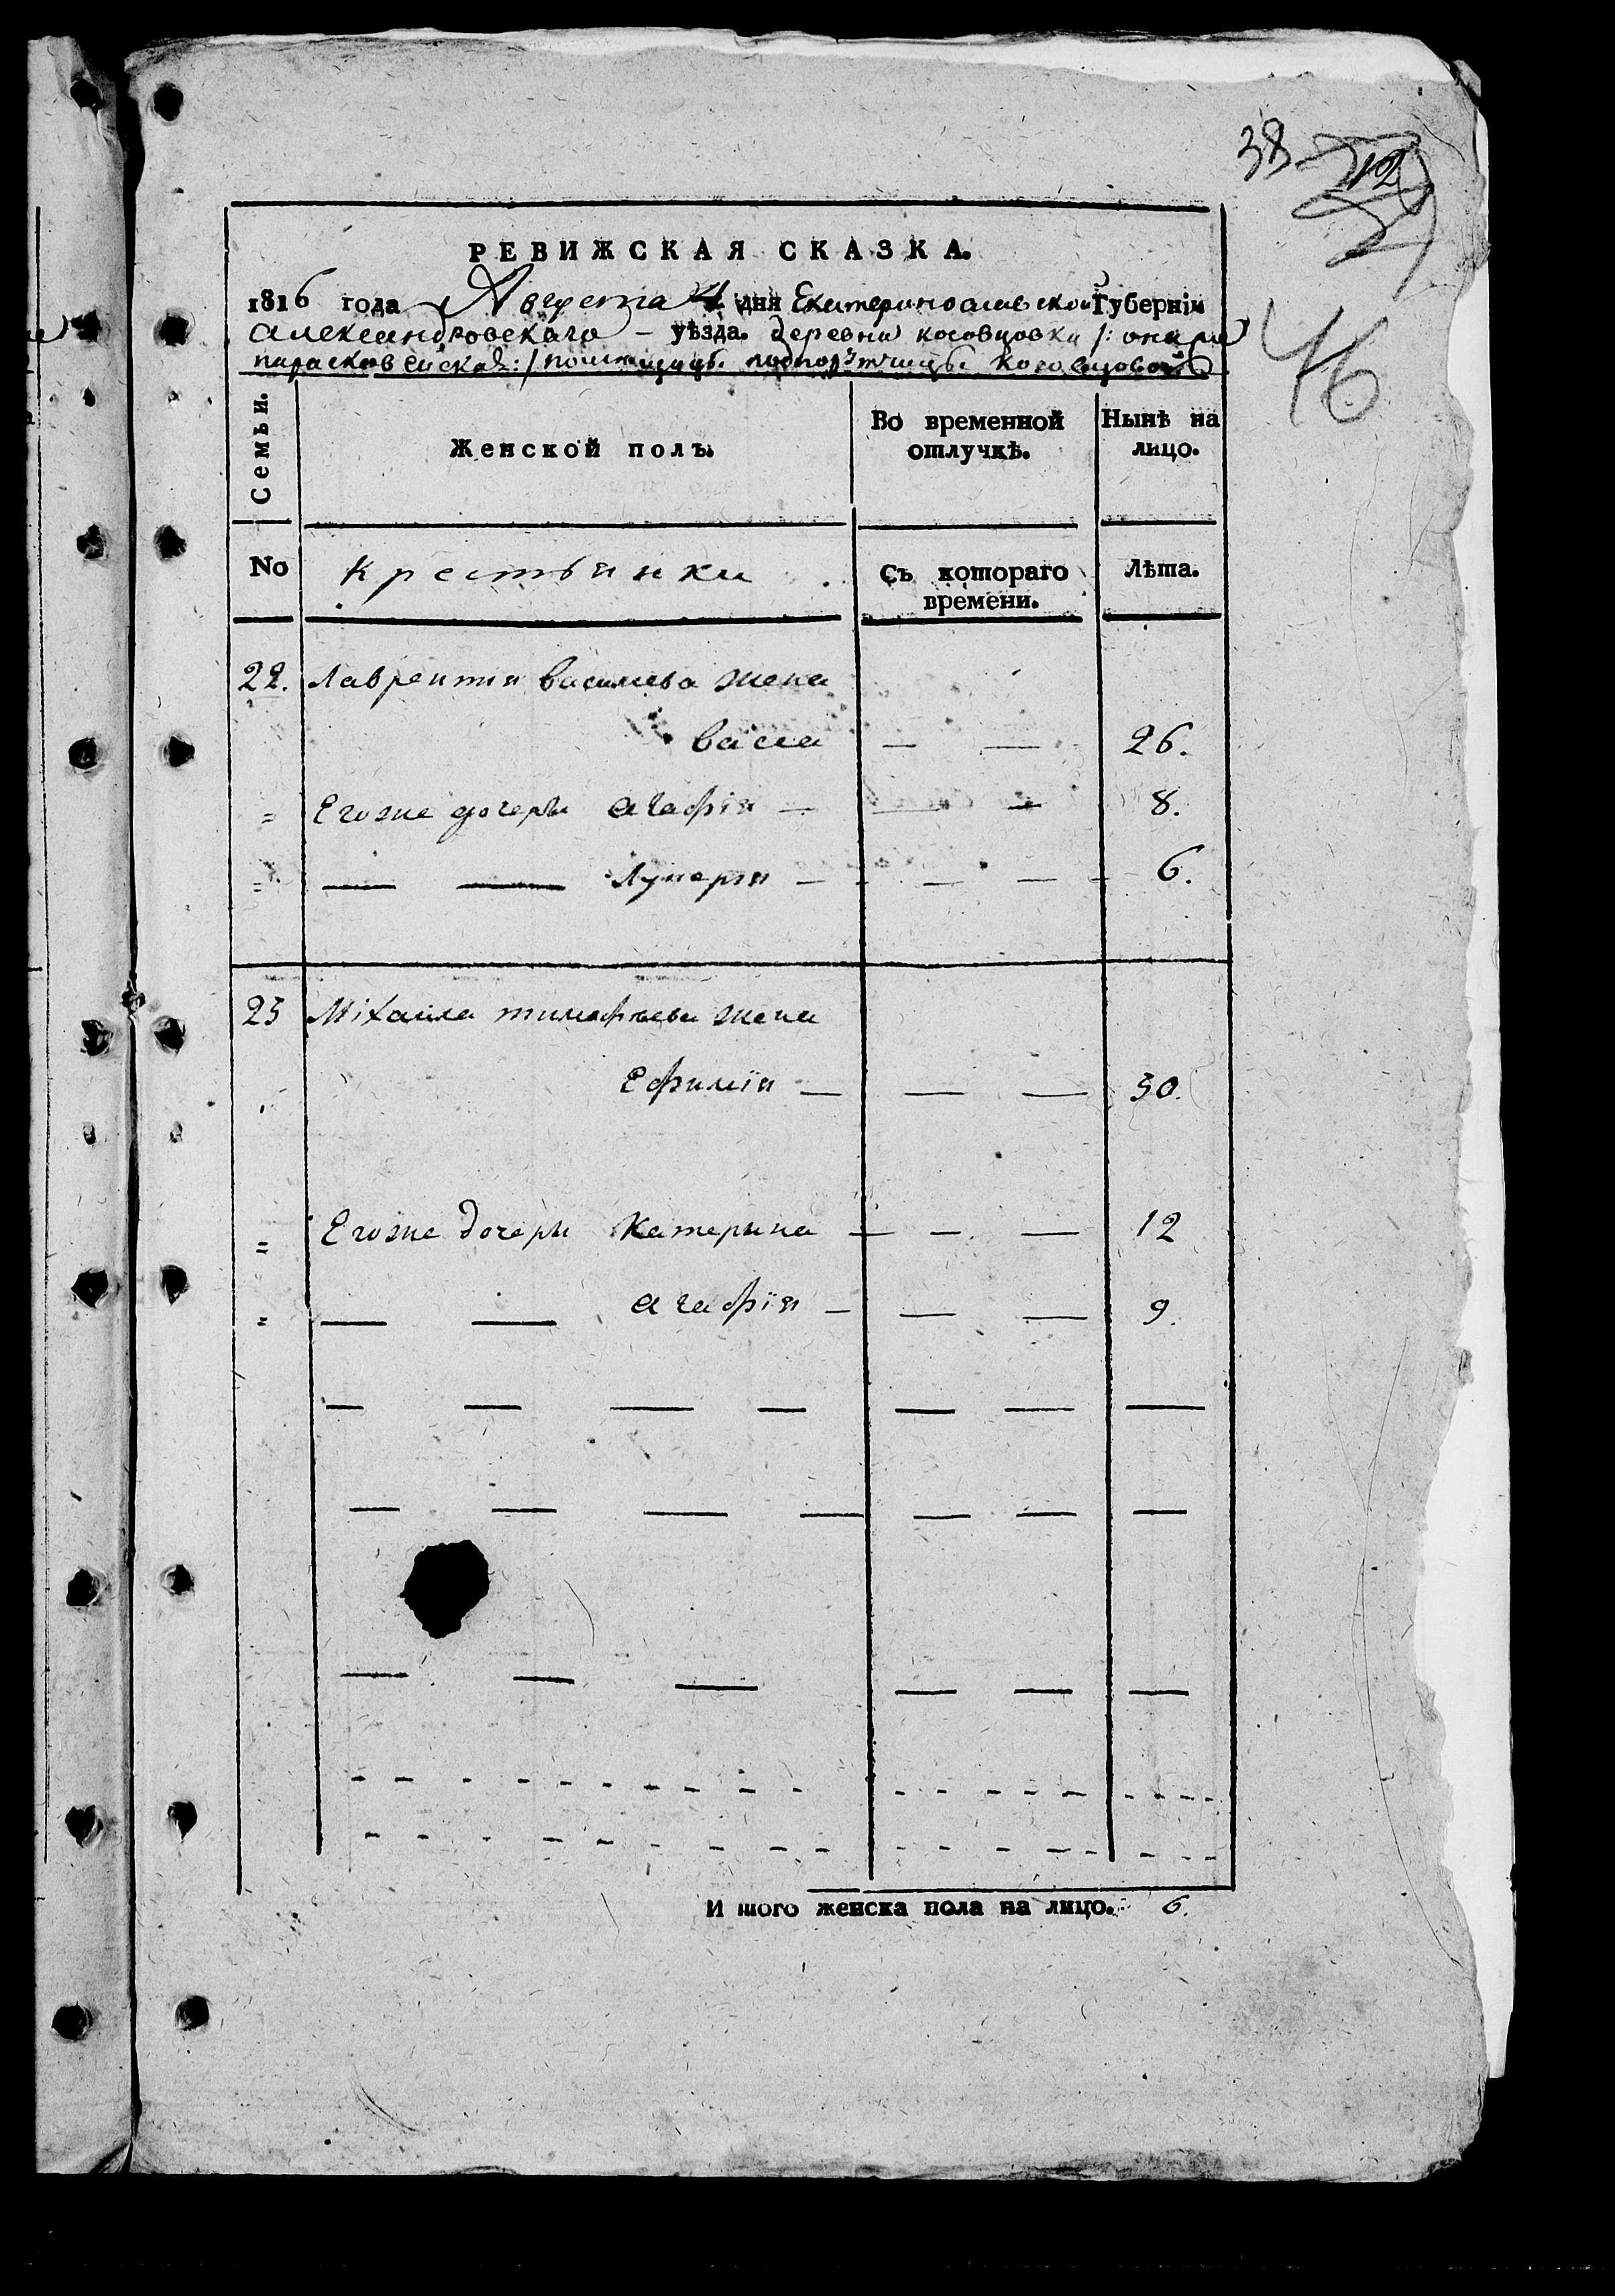 38 12
РЕВИЖСКАЯ СКАЗКА.
1816 года Августа 4 дня Екатеринославской Губерніи
Александровскаго — уѣзда. деревни косовцовки /: она же
парасковейская :/ помещицы подпорутчицы Косовцовой
46
Семьи.
Женской полъ.
Во временной отлучкѣ.
Нынѣ на лицо.
No
крестьянки
Съ котораго времени.
Лѣта.
22. Лаврентия василиева жена
васса — — 26.
= Егоже дочери агафія — — — 8.
" — — Лукерия — — — 6.
23 Міхаила тимофеева жена
Ефимія — — — 30.
= Егоже дочери Катерина — — — 12
" — — агафія — — — 9.
И того женска пола на лицо. 6.